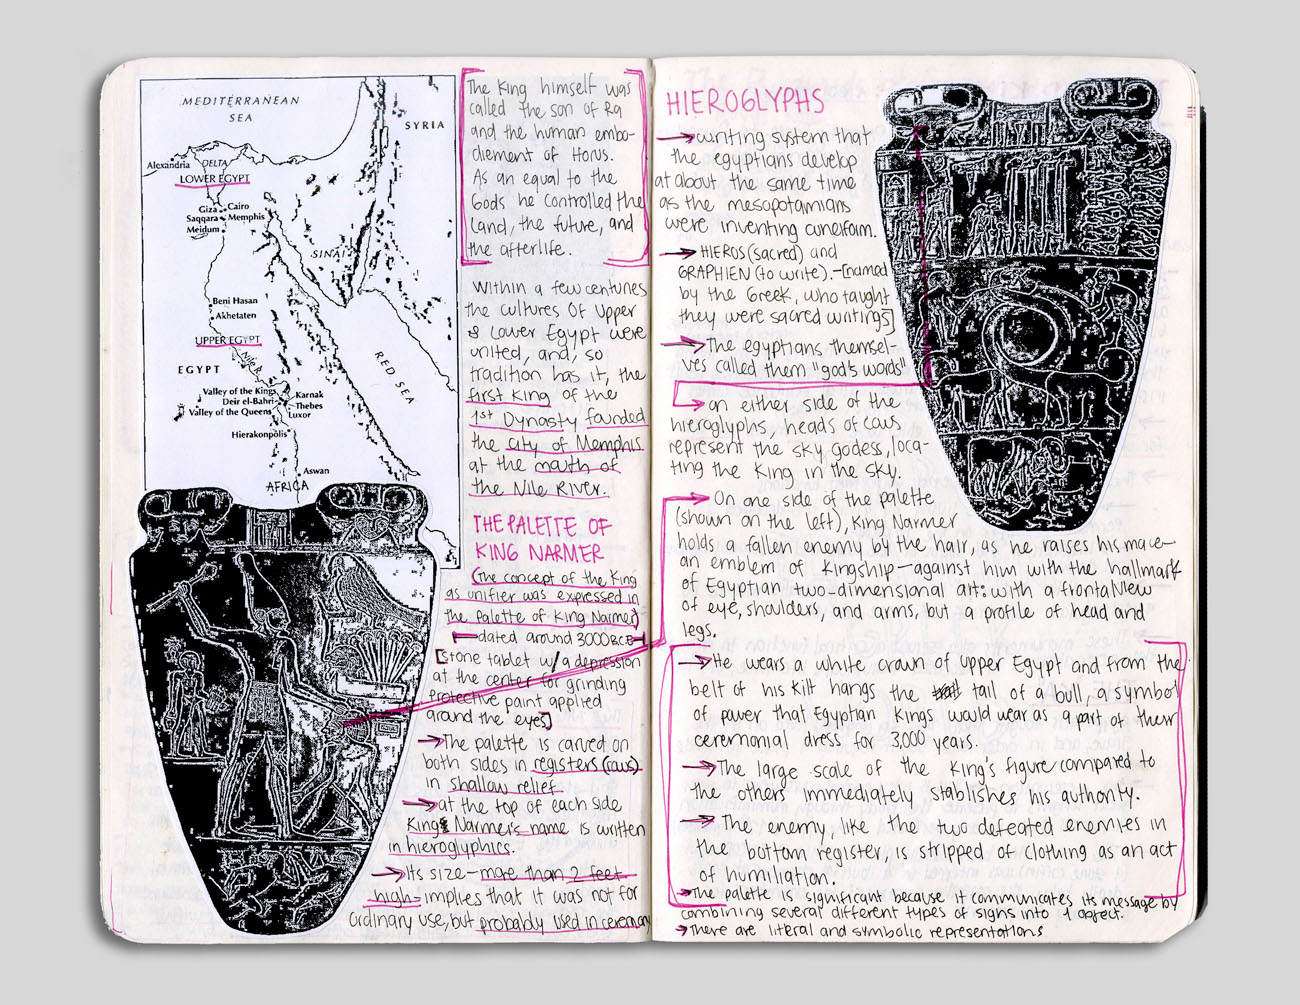 MEDITERRANEAN
SEA
SYRIA
Alexandria
DELTA
LOWER EGYPT
Giza
Cairo
Saqqara
Memphis
Meidum
SINAI
Beni Hasan
Akhetaten
UPPER EGYPT
Nile
EGYPT
RED SEA
Valley of the Kings
Karnak
Deir el-Bahri
Thebes
Valley of the Queens
Luxor
Hierakonpolis
Aswan
AFRICA
The King himself was
called the son of Ra
and the human embo-
diement of Horus.
As an equal to the
Gods he controlled the
land, the future, and
the afterlife.
Within a few centuries
the cultures of Upper
& Lower Egypt were
united, and, so
tradition has it, the
first King of the
1st Dynasty founded
the city of Memphis
at the mouth of
the Nile River.
THE PALETTE OF
KING NARMER
(The concept of the King
as unifier was expressed in
the Palette of King Narmer)
dated around 3000 BCE
[stone tablet w/a depression
at the center for grinding
protective paint applied
around the eyes]
→The palette is carved on
both sides in registers (rows)
in shallow relief.
→at the top of each side
King Narmer's name is written
in hieroglyphics.
→Its size-more than 2 feet
high-implies that it was not for
ordinary use, but probably used in ceremony
HIEROGLYPHS
→writing system that
the egyptians develop
at about the same time
as the mesopotamians
were inventing cuneiform.
→HIEROS (sacred) and
GRAPHIEN (to write).-[named
by the Greek, who taught
they were sacred writings]
→The egyptians themsel-
ves called them "god's words"
→on either side of the
hieroglyphs, heads of cows
represent the sky godess, loca-
ting the King in the sky.
→On one side of the palette
(shown on the left), King Narmer
holds a fallen enemy by the hair, as he raises his mace—
an emblem of Kingship—against him with the hallmark
of Egyptian two-dimensional art: with a frontal view
of eye, shoulders, and arms, but a profile of head and
legs.
→He wears a white crown of Upper Egypt and from the
belt of his Kilt hangs the tail of a bull, a symbol
of power that Egyptian Kings would wear as a part of their
ceremonial dress for 3,000 years.
→The large scale of the King's figure compared to
the others immediately stablishes his authority.
→The enemy, like the two defeated enemies in
the bottom register, is stripped of clothing as an act
of humiliation.
→The palette is significant because it communicates its message by
combining several different types of signs into 1 object.
→There are literal and symbolic representations